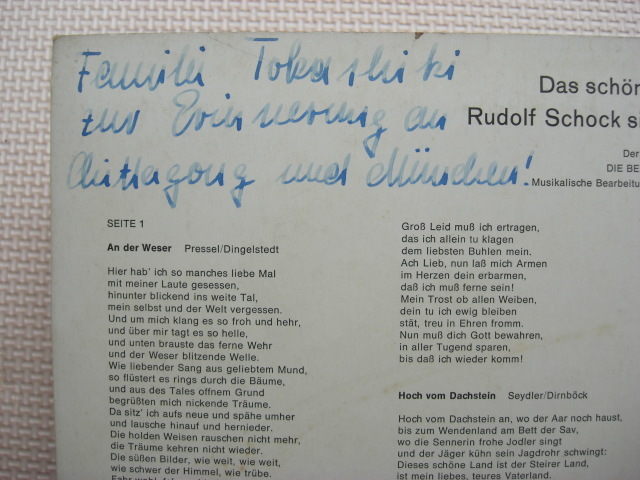 Familie Tokashiki
zur Erinnerung an
Chittagong und München!
Das schön
Rudolf Schock s
Der
DIE BE
Musikalische Bearbeitu
SEITE 1
An der Weser Pressel/Dingelstedt
Hier hab' ich so manches liebe Mal
mit meiner Laute gesessen,
hinunter blickend ins weite Tal,
mein selbst und der Welt vergessen.
Und um mich klang es so froh und hehr,
und über mir tagt es so helle,
und unten brauste das ferne Wehr
und der Weser blitzende Welle.
Wie liebender Sang aus geliebtem Mund,
so flüstert es rings durch die Bäume,
und aus des Tales offnem Grund
begrüßten mich nickende Träume.
Da sitz' ich aufs neue und spähe umher
und lausche hinauf und hernieder.
Die holden Weisen rauschen nicht mehr,
die Träume kehren nicht wieder.
Die süßen Bilder, wie weit, wie weit,
wie schwer der Himmel, wie trübe.
Groß Leid muß ich ertragen,
das ich allein tu klagen
dem liebsten Buhlen mein.
Ach Lieb, nun laß mich Armen
im Herzen dein erbarmen,
daß ich muß ferne sein!
Mein Trost ob allen Weiben,
dein tu ich ewig bleiben
stät, treu in Ehren fromm.
Nun muß dich Gott bewahren,
in aller Tugend sparen,
bis daß ich wieder komm!
Hoch vom Dachstein Seydler/Dirnböck
Hoch vom Dachstein an, wo der Aar noch haust,
bis zum Wendenland am Bett der Sav,
wo die Sennerin frohe Jodler singt
und der Jäger kühn sein Jagdrohr schwingt:
Dieses schöne Land ist der Steirer Land,
ist mein liebes, teures Vaterland.